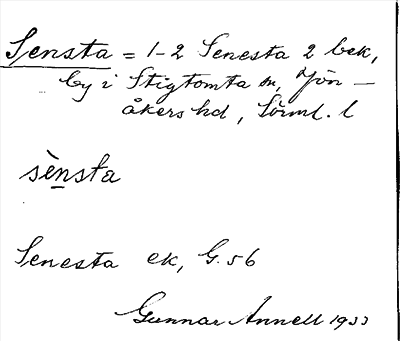 Sensta = 1-2 Senesta 2 bek,
by i Stigtomta sn, Jön-
åkers hd, Sörml. l
sènsta
Senesta ek, G. 56
Gunnar Annell 1933